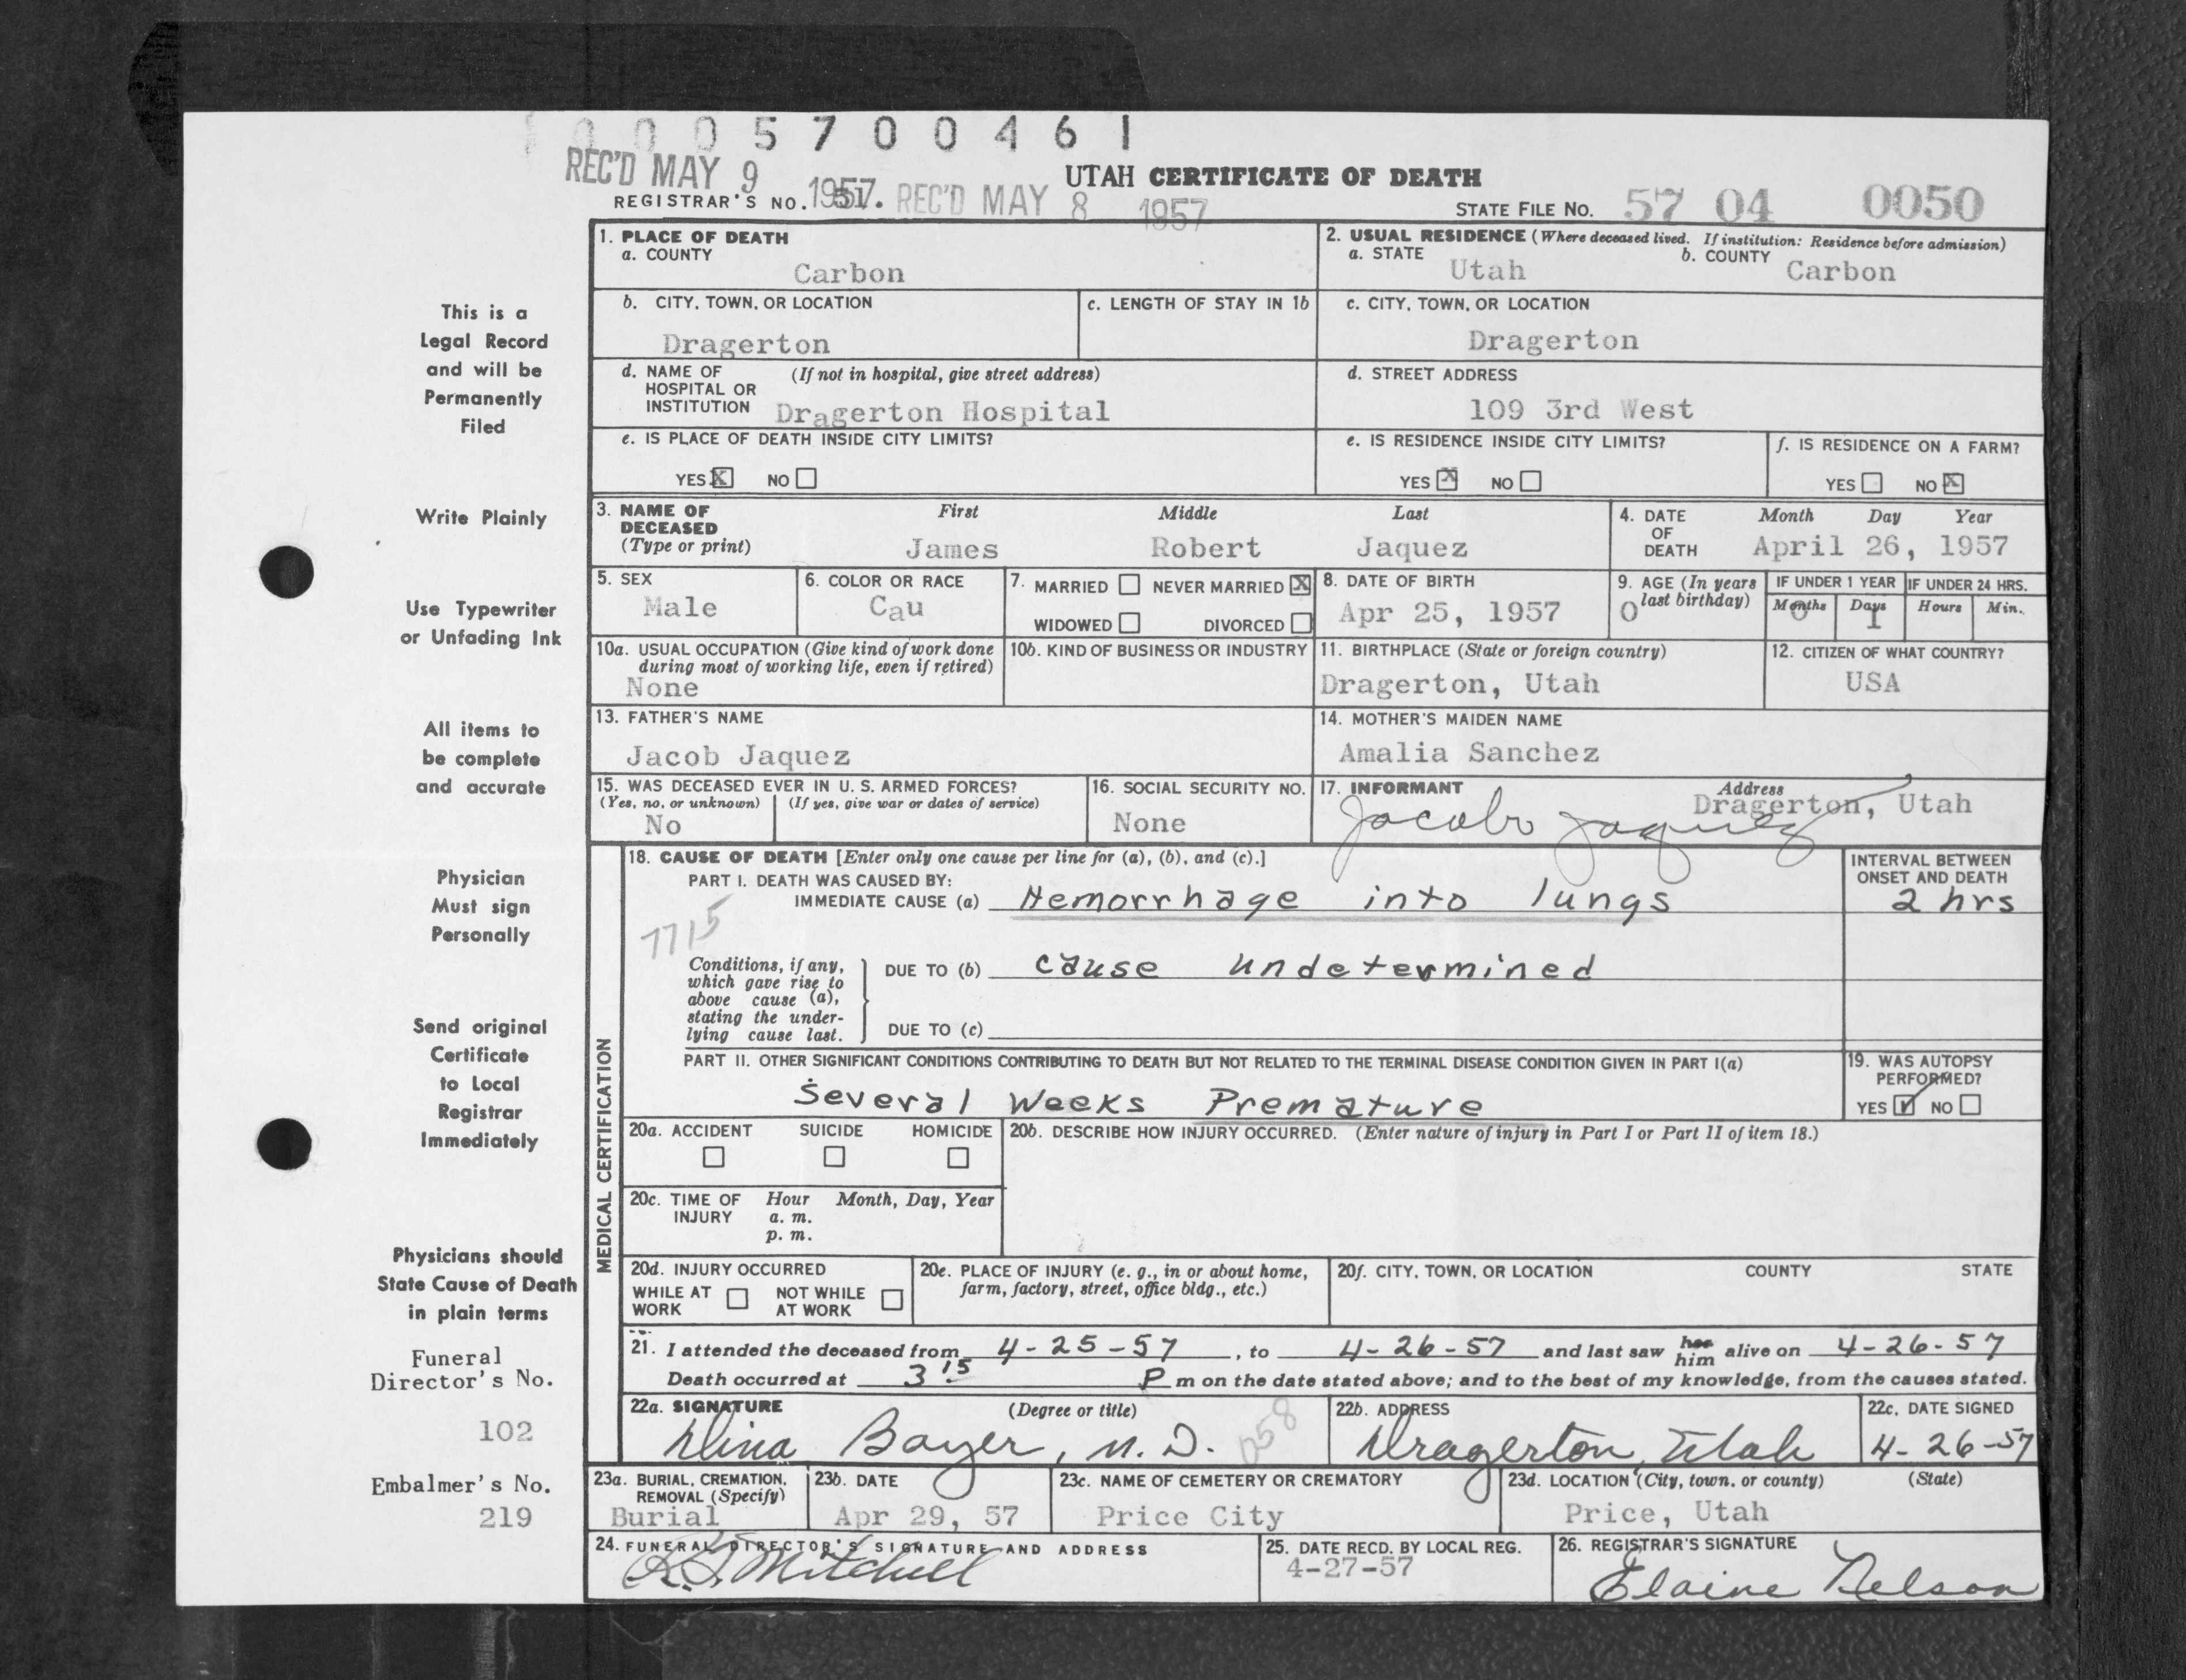 0 0 0 5 7 0 0 4 6 1
REC'D MAY 9 1957. REC'D MAY 8 1957
UTAH CERTIFICATE OF DEATH
REGISTRAR'S NO.
STATE FILE NO. 57 04 0050
This is a
Legal Record
and will be
Permanently
Filed
Write Plainly
Use Typewriter
or Unfading Ink
All items to
be complete
and accurate
Physician
Must sign
Personally
Send original
Certificate
to Local
Registrar
Immediately
Physicians should
State Cause of Death
in plain terms
Funeral
Director's No.
102
Embalmer's No.
219
1. PLACE OF DEATH
a. COUNTY
Carbon
2. USUAL RESIDENCE (Where deceased lived. If institution: Residence before admission)
a. STATE Utah b. COUNTY Carbon
b. CITY, TOWN, OR LOCATION
Dragerton
c. LENGTH OF STAY IN 1b
c. CITY, TOWN, OR LOCATION
Dragerton
d. NAME OF (If not in hospital, give street address)
HOSPITAL OR
INSTITUTION Dragerton Hospital
d. STREET ADDRESS
109 3rd West
e. IS PLACE OF DEATH INSIDE CITY LIMITS?
YES X NO
e. IS RESIDENCE INSIDE CITY LIMITS?
YES X NO
f. IS RESIDENCE ON A FARM?
YES NO X
3. NAME OF First Middle Last
DECEASED
(Type or print) James Robert Jaquez
4. DATE Month Day Year
OF
DEATH April 26, 1957
5. SEX
Male
6. COLOR OR RACE
Cau
7. MARRIED NEVER MARRIED X
WIDOWED DIVORCED
8. DATE OF BIRTH
Apr 25, 1957
9. AGE (In years
last birthday)
0
IF UNDER 1 YEAR
Months Days
0 1
IF UNDER 24 HRS.
Hours Min.
10a. USUAL OCCUPATION (Give kind of work done
during most of working life, even if retired)
None
10b. KIND OF BUSINESS OR INDUSTRY
11. BIRTHPLACE (State or foreign country)
Dragerton, Utah
12. CITIZEN OF WHAT COUNTRY?
USA
13. FATHER'S NAME
Jacob Jaquez
14. MOTHER'S MAIDEN NAME
Amalia Sanchez
15. WAS DECEASED EVER IN U. S. ARMED FORCES?
(Yes, no, or unknown) (If yes, give war or dates of service)
No
16. SOCIAL SECURITY NO.
None
17. INFORMANT Address
Jacobo Jaquez Dragerton, Utah
MEDICAL CERTIFICATION
18. CAUSE OF DEATH [Enter only one cause per line for (a), (b), and (c).]
PART I. DEATH WAS CAUSED BY:
IMMEDIATE CAUSE (a) Hemorrhage into lungs
INTERVAL BETWEEN
ONSET AND DEATH
2 hrs
7715
Conditions, if any,
which gave rise to
above cause (a),
stating the under-
lying cause last.
DUE TO (b) cause undetermined
DUE TO (c)
PART II. OTHER SIGNIFICANT CONDITIONS CONTRIBUTING TO DEATH BUT NOT RELATED TO THE TERMINAL DISEASE CONDITION GIVEN IN PART I(a)
Several Weeks Premature
19. WAS AUTOPSY
PERFORMED?
YES ✓ NO
20a. ACCIDENT SUICIDE HOMICIDE
20b. DESCRIBE HOW INJURY OCCURRED. (Enter nature of injury in Part I or Part II of item 18.)
20c. TIME OF Hour Month, Day, Year
INJURY a. m.
p. m.
20d. INJURY OCCURRED
WHILE AT NOT WHILE
WORK AT WORK
20e. PLACE OF INJURY (e. g., in or about home,
farm, factory, street, office bldg., etc.)
20f. CITY, TOWN, OR LOCATION COUNTY STATE
21. I attended the deceased from 4-25-57, to 4-26-57 and last saw her him alive on 4-26-57
Death occurred at 3 15 P m on the date stated above; and to the best of my knowledge, from the causes stated.
22a. SIGNATURE (Degree or title)
Dina Bayer, M.D. 058
22b. ADDRESS
Dragerton, Utah
22c. DATE SIGNED
4-26-57
23a. BURIAL, CREMATION,
REMOVAL (Specify)
Burial
23b. DATE
Apr 29, 57
23c. NAME OF CEMETERY OR CREMATORY
Price City
23d. LOCATION (City, town, or county) (State)
Price, Utah
24. FUNERAL DIRECTOR'S SIGNATURE AND ADDRESS
Mitchell
25. DATE RECD. BY LOCAL REG.
4-27-57
26. REGISTRAR'S SIGNATURE
Elaine Nelson